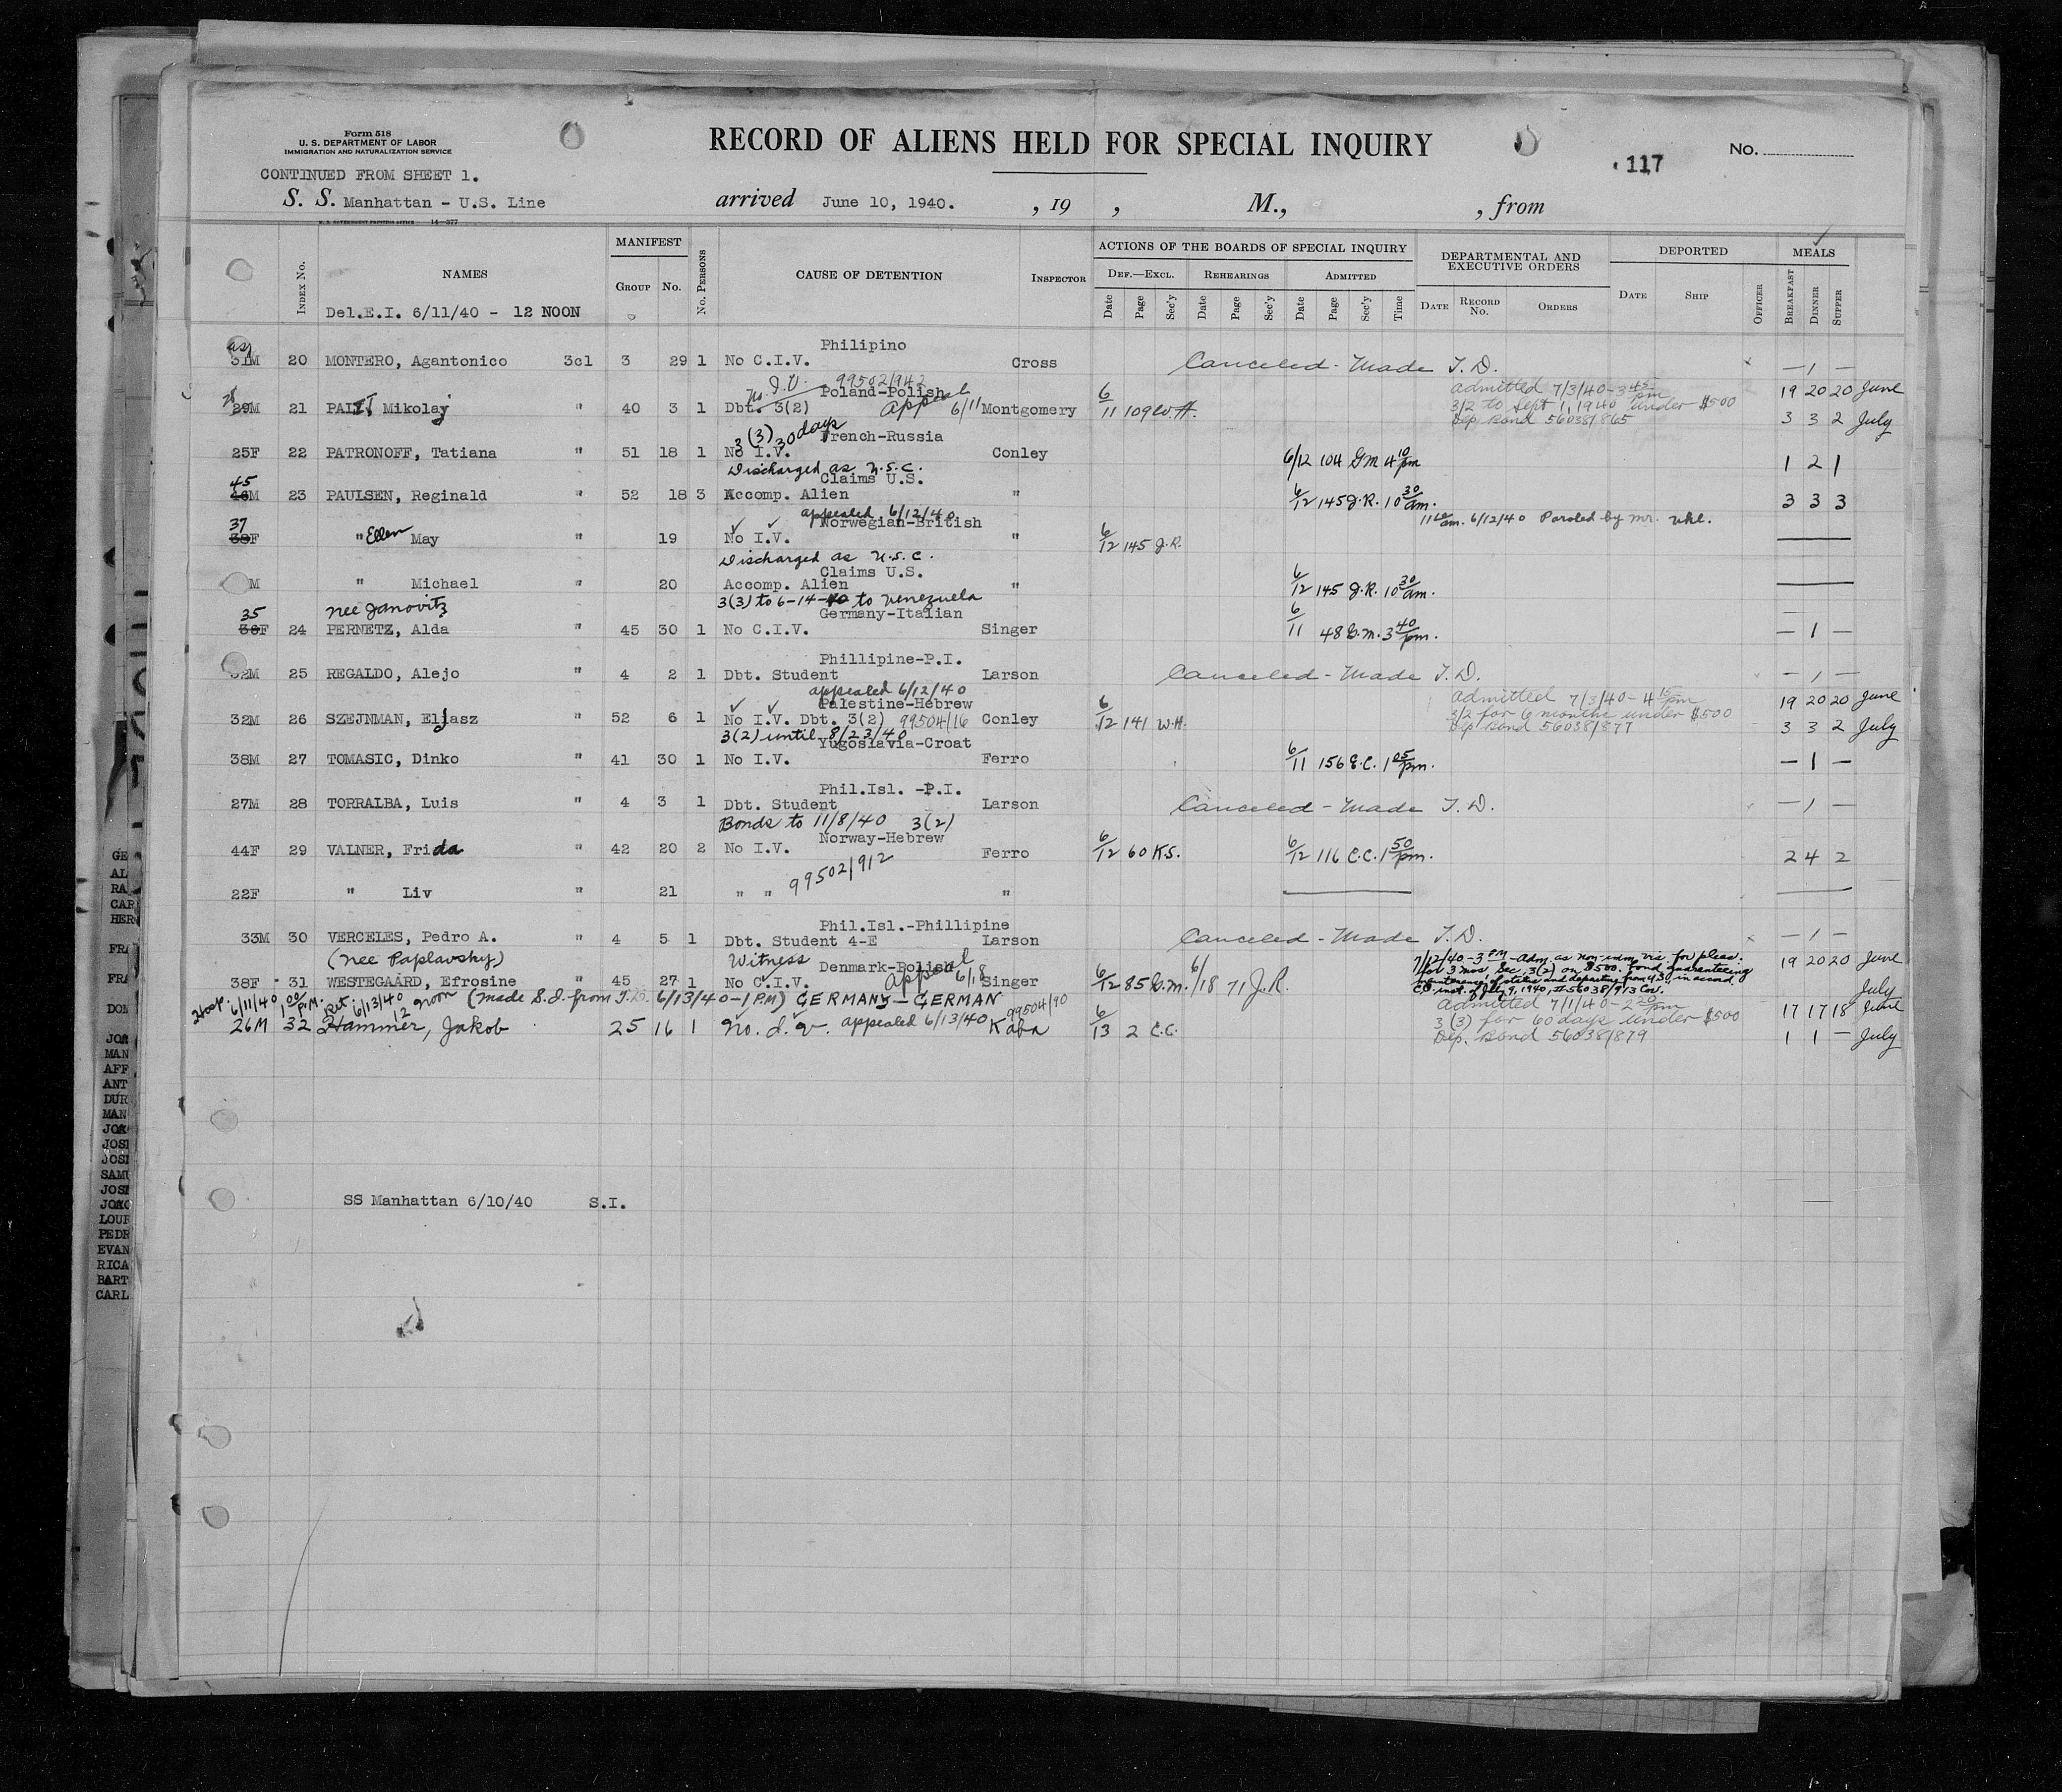 Form 518
U. S. DEPARTMENT OF LABOR
IMMIGRATION AND NATURALIZATION SERVICE
RECORD OF ALIENS HELD FOR SPECIAL INQUIRY
117
No.
CONTINUED FROM SHEET 1.
S. S. Manhattan - U.S. Line arrived June 10, 1940. , 19 , M., , from
U. S. GOVERNMENT PRINTING OFFICE 14-377
Index No. NAMES MANIFEST Group No. No. Persons CAUSE OF DETENTION Inspector
ACTIONS OF THE BOARDS OF SPECIAL INQUIRY Def.—Excl. Rehearings Admitted
Date Page Sec'y Date Page Sec'y Date Page Sec'y Time
DEPARTMENTAL AND EXECUTIVE ORDERS Date Record No. Orders
DEPORTED Date Ship Officer
MEALS Breakfast Dinner Supper
Del.E.I. 6/11/40 - 12 NOON
Philipino
31M 20 MONTERO, Agantonico 3cl 3 29 1 No C.I.V. Cross Canceled - Made T.D. — 1 —
No I.V. 99502/942
Poland-Polish appeal 6/11 admitted 7/3/40 - 3 45 pm 19 20 20 June
29M 21 PALIJ, Mikolaj " 40 3 1 Dbt. 3(2) Montgomery 6/11 109 W.H. 3/2 to Sept 1, 1940 under $500
Dep Bond 56038/865 3 3 2 July
3(3) 30 days French-Russia
25F 22 PATRONOFF, Tatiana " 51 18 1 No I.V. Conley 6/12 104 GM 4 10 pm 1 2 1
Discharged as U.S.C.
45 Claims U.S.
46M 23 PAULSEN, Reginald " 52 18 3 Accomp. Alien " 6/12 145 J.R. 10 30 am. 3 3 3
appealed 6/12/40
37 Norwegian-British 6/12/40 Paroled by Mr. Uhl.
38F " Ellen May " 19 No I.V. " 6/12 145 J.R.
Discharged as U.S.C.
Claims U.S.
M " Michael " 20 Accomp. Alien " 6/12 145 J.R. 10 30 am.
3(3) to 6-14-40 to Venezuela
35 nee Janovitz Germany-Italian
36F 24 PERNETZ, Alda " 45 30 1 No C.I.V. Singer 6/11 48 G.M. 3 40 pm. — 1 —
Phillipine-P.I.
32M 25 REGALDO, Alejo " 4 2 1 Dbt. Student Larson Canceled - Made T.D. — 1 —
appealed 6/12/40
Palestine-Hebrew admitted 7/3/40 - 4 15 pm 19 20 20 June
32M 26 SZEJNMAN, Eljasz " 52 6 1 No I.V. Dbt. 3(2) 99504/16 Conley 6/12 141 W.H. 3/2 for 6 months under $500
Dep Bond 56038/877 3 3 2 July
3(2) until 8/23/40
Yugoslavia-Croat
38M 27 TOMASIC, Dinko " 41 30 1 No I.V. Ferro 6/11 156 E.C. 1 05 pm. — 1 —
Phil.Isl. -P.I.
27M 28 TORRALBA, Luis " 4 3 1 Dbt. Student Larson Canceled - Made T.D. — 1 —
Bonds to 11/8/40 3(2)
Norway-Hebrew
44F 29 VALNER, Frida " 42 20 2 No I.V. Ferro 6/12 60 K.S. 6/12 116 C.C. 1 50 pm. 2 4 2
99502/912
22F " Liv " 21 " " "
Phil.Isl.-Phillipine
33M 30 VERCELES, Pedro A. " 4 5 1 Dbt. Student 4-E Larson Canceled - Made T.D. — 1 —
(nee Paplavsky) Witness Denmark-Polish Appeal 6/18
38F 31 WESTEGAARD, Efrosine " 45 27 1 No C.I.V. Singer 6/12 85 G.M. 6/18 71 J.R. 19 20 20 June
7/12/40 - 3 PM - Adm. as non-imm. vis. for pleas.
for 3 mos. Sec. 3(2) on $500. bond guaranteeing
maintenance of status and departure from U.S. in accord.
C.O. inst. of July 9, 1940, # 56038/913 Cor. July
Hosp. 6/11/40 1 00 P.M. Ret. 6/13/40 12 noon (made S.I. from T.D. 6/13/40 - 1 PM) GERMANY - GERMAN 99504/90
26M 32 Hammer, Jakob 25 16 1 No. I. V. appealed 6/13/40 Kaba 6/13 2 C.C.
admitted 7/1/40 - 2 20 pm 17 17 18 June
3(3) for 60 days under $500
Dep. Bond 56038/879 1 1 — July
SS Manhattan 6/10/40 S.I.
GE
AL
RA
CAR
HER
FRA
FRA
DOM
JOA
MAN
AFF
ANT
DUR
MAN
JOA
JOSE
JOSE
SAMU
JOSE
JOAO
LOUR
PEDR
EVAN
RICA
BART
CARL